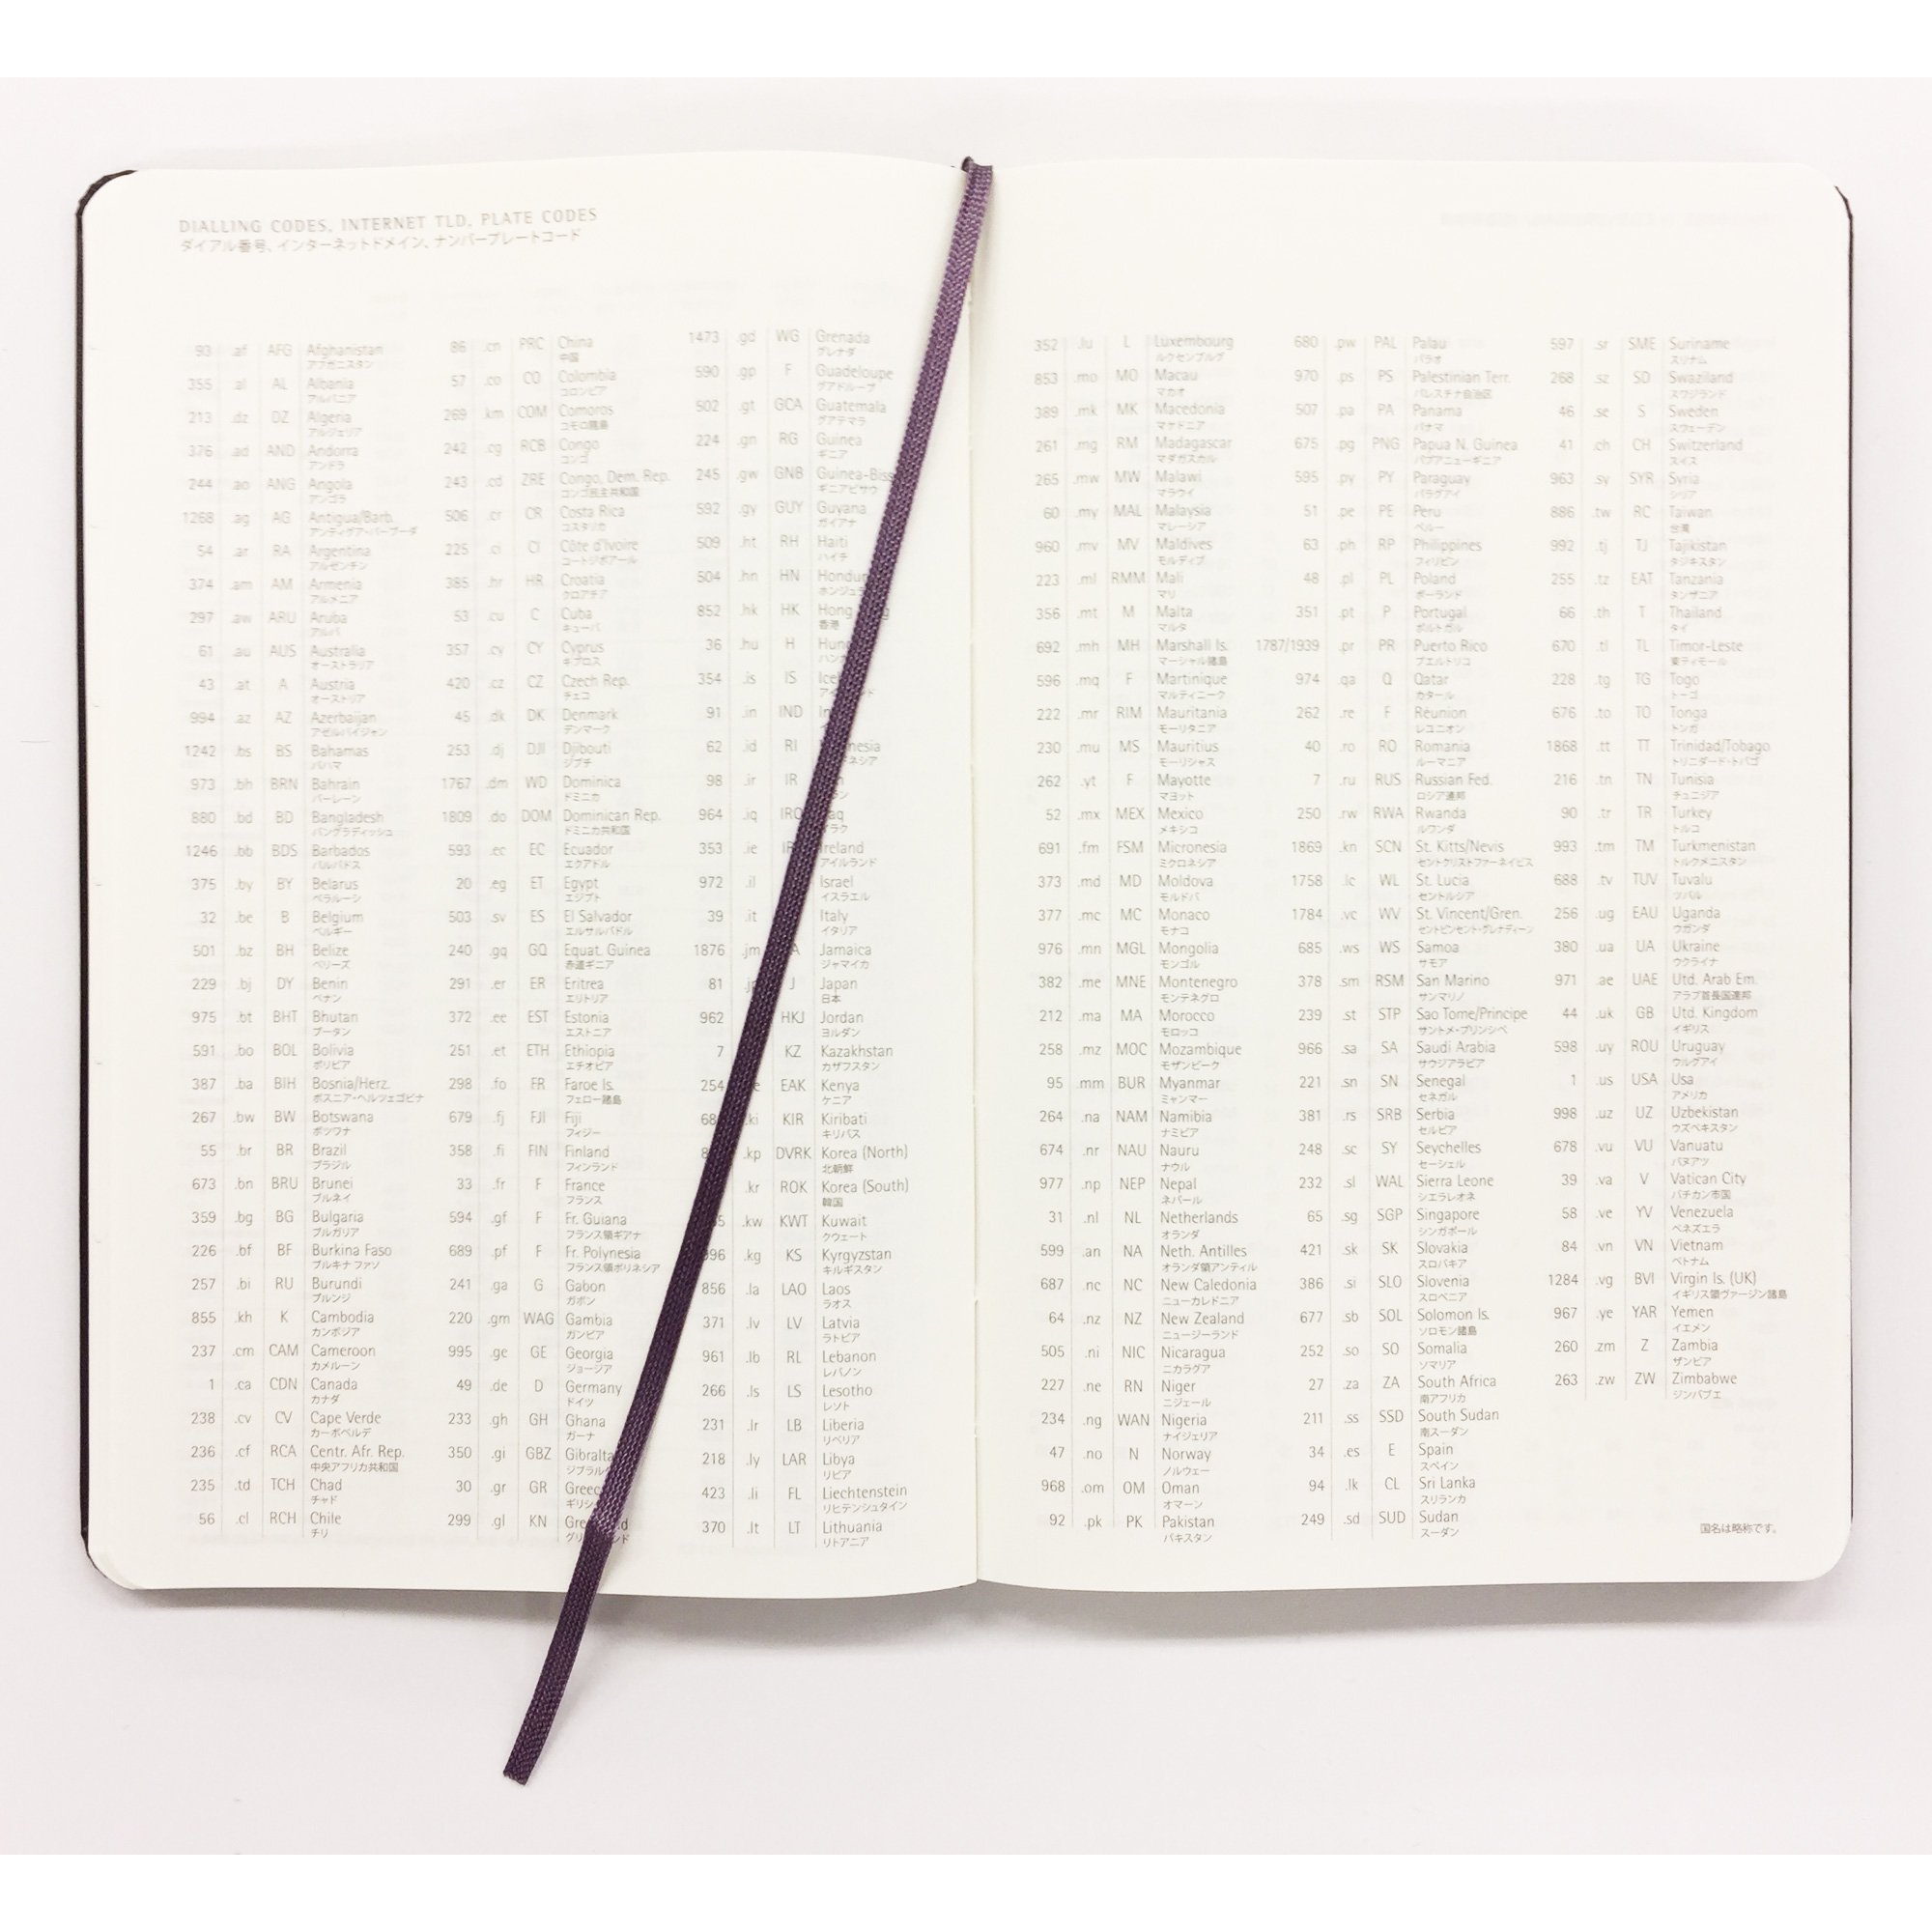 DIALLING CODES, INTERNET TLD, PLATE CODES
ダイアル番号、インターネットドメイン、ナンバープレートコード
93 .af AFG Afghanistan
アフガニスタン
355 .al AL Albania
アルバニア
213 .dz DZ Algeria
アルジェリア
376 .ad AND Andorra
アンドラ
244 .ao ANG Angola
アンゴラ
1268 .ag AG Antigua/Barb.
アンティグア・バーブーダ
54 .ar RA Argentina
アルゼンチン
374 .am AM Armenia
アルメニア
297 .aw ARU Aruba
アルバ
61 .au AUS Australia
オーストラリア
43 .at A Austria
オーストリア
994 .az AZ Azerbaijan
アゼルバイジャン
1242 .bs BS Bahamas
バハマ
973 .bh BRN Bahrain
バーレーン
880 .bd BD Bangladesh
バングラディッシュ
1246 .bb BDS Barbados
バルバドス
375 .by BY Belarus
ベラルーシ
32 .be B Belgium
ベルギー
501 .bz BH Belize
ベリーズ
229 .bj DY Benin
ベナン
975 .bt BHT Bhutan
ブータン
591 .bo BOL Bolivia
ボリビア
387 .ba BIH Bosnia/Herz.
ボスニア・ヘルツェゴビナ
267 .bw BW Botswana
ボツワナ
55 .br BR Brazil
ブラジル
673 .bn BRU Brunei
ブルネイ
359 .bg BG Bulgaria
ブルガリア
226 .bf BF Burkina Faso
ブルキナ ファソ
257 .bi RU Burundi
ブルンジ
855 .kh K Cambodia
カンボジア
237 .cm CAM Cameroon
カメルーン
1 .ca CDN Canada
カナダ
238 .cv CV Cape Verde
カーボベルデ
236 .cf RCA Centr. Afr. Rep.
中央アフリカ共和国
235 .td TCH Chad
チャド
56 .cl RCH Chile
チリ
86 .cn PRC China
中国
57 .co CO Colombia
コロンビア
269 .km COM Comoros
コモロ諸島
242 .cg RCB Congo
コンゴ
243 .cd ZRE Congo, Dem. Rep.
コンゴ民主共和国
506 .cr CR Costa Rica
コスタリカ
225 .ci CI Côte d'Ivoire
コートジボアール
385 .hr HR Croatia
クロアチア
53 .cu C Cuba
キューバ
357 .cy CY Cyprus
キプロス
420 .cz CZ Czech Rep.
チェコ
45 .dk DK Denmark
デンマーク
253 .dj DJI Djibouti
ジブチ
1767 .dm WD Dominica
ドミニカ
1809 .do DOM Dominican Rep.
ドミニカ共和国
593 .ec EC Ecuador
エクアドル
20 .eg ET Egypt
エジプト
503 .sv ES El Salvador
エルサルバドル
240 .gq GQ Equat. Guinea
赤道ギニア
291 .er ER Eritrea
エリトリア
372 .ee EST Estonia
エストニア
251 .et ETH Ethiopia
エチオピア
298 .fo FR Faroe Is.
フェロー諸島
679 .fj FJI Fiji
フィジー
358 .fi FIN Finland
フィンランド
33 .fr F France
フランス
594 .gf F Fr. Guiana
フランス領ギアナ
689 .pf F Fr. Polynesia
フランス領ポリネシア
241 .ga G Gabon
ガボン
220 .gm WAG Gambia
ガンビア
995 .ge GE Georgia
ジョージア
49 .de D Germany
ドイツ
233 .gh GH Ghana
ガーナ
350 .gi GBZ Gibralta
ジブラル
30 .gr GR Greec
ギリシ
299 .gl KN Gre d
グリ ンド
1473 .gd WG Grenada
グレナダ
590 .gp F Guadeloupe
グアドループ
502 .gt GCA Guatemala
グアテマラ
224 .gn RG Guinea
ギニア
245 .gw GNB Guinea-Biss
ギニアビサウ
592 .gy GUY Guyana
ガイアナ
509 .ht RH Haiti
ハイチ
504 .hn HN Hondur
ホンジュラ
852 .hk HK Hong g
香港
36 .hu H Hung
ハンガ
354 .is IS Icel
アイ ンド
91 .in IND In
62 .id RI nesia
ネシア
98 .ir IR n
ン
964 .iq IRQ aq
ラク
353 .ie IR Ireland
アイルランド
972 .il Israel
イスラエル
39 .it Italy
イタリア
1876 .jm A Jamaica
ジャマイカ
81 .jp J Japan
日本
962 HKJ Jordan
ヨルダン
7 KZ Kazakhstan
カザフスタン
254 e EAK Kenya
ケニア
68 .ki KIR Kiribati
キリバス
8 .kp DVRK Korea (North)
北朝鮮
.kr ROK Korea (South)
韓国
5 .kw KWT Kuwait
クウェート
996 .kg KS Kyrgyzstan
キルギスタン
856 .la LAO Laos
ラオス
371 .lv LV Latvia
ラトビア
961 .lb RL Lebanon
レバノン
266 .ls LS Lesotho
レソト
231 .lr LB Liberia
リベリア
218 .ly LAR Libya
リビア
423 .li FL Liechtenstein
リヒテンシュタイン
370 .lt LT Lithuania
リトアニア
352 .lu L Luxembourg
ルクセンブルグ
853 .mo MO Macau
マカオ
389 .mk MK Macedonia
マケドニア
261 .mg RM Madagascar
マダガスカル
265 .mw MW Malawi
マラウイ
60 .my MAL Malaysia
マレーシア
960 .mv MV Maldives
モルディブ
223 .ml RMM Mali
マリ
356 .mt M Malta
マルタ
692 .mh MH Marshall Is.
マーシャル諸島
596 .mq F Martinique
マルティニーク
222 .mr RIM Mauritania
モーリタニア
230 .mu MS Mauritius
モーリシャス
262 .yt F Mayotte
マヨット
52 .mx MEX Mexico
メキシコ
691 .fm FSM Micronesia
ミクロネシア
373 .md MD Moldova
モルドバ
377 .mc MC Monaco
モナコ
976 .mn MGL Mongolia
モンゴル
382 .me MNE Montenegro
モンテネグロ
212 .ma MA Morocco
モロッコ
258 .mz MOC Mozambique
モザンビーク
95 .mm BUR Myanmar
ミャンマー
264 .na NAM Namibia
ナミビア
674 .nr NAU Nauru
ナウル
977 .np NEP Nepal
ネパール
31 .nl NL Netherlands
オランダ
599 .an NA Neth. Antilles
オランダ領アンティル
687 .nc NC New Caledonia
ニューカレドニア
64 .nz NZ New Zealand
ニュージーランド
505 .ni NIC Nicaragua
ニカラグア
227 .ne RN Niger
ニジェール
234 .ng WAN Nigeria
ナイジェリア
47 .no N Norway
ノルウェー
968 .om OM Oman
オマーン
92 .pk PK Pakistan
パキスタン
680 .pw PAL Palau
パラオ
970 .ps PS Palestinian Terr.
パレスチナ自治区
507 .pa PA Panama
パナマ
675 .pg PNG Papua N. Guinea
パプアニューギニア
595 .py PY Paraguay
パラグアイ
51 .pe PE Peru
ペルー
63 .ph RP Philippines
フィリピン
48 .pl PL Poland
ポーランド
351 .pt P Portugal
ポルトガル
1787/1939 .pr PR Puerto Rico
プエルトリコ
974 .qa Q Qatar
カタール
262 .re F Réunion
レユニオン
40 .ro RO Romania
ルーマニア
7 .ru RUS Russian Fed.
ロシア連邦
250 .rw RWA Rwanda
ルワンダ
1869 .kn SCN St. Kitts/Nevis
セントクリストファーネイビス
1758 .lc WL St. Lucia
セントルシア
1784 .vc WV St. Vincent/Gren.
セントビンセント・グレナディーン
685 .ws WS Samoa
サモア
378 .sm RSM San Marino
サンマリノ
239 .st STP Sao Tome/Principe
サントメ・プリンシペ
966 .sa SA Saudi Arabia
サウジアラビア
221 .sn SN Senegal
セネガル
381 .rs SRB Serbia
セルビア
248 .sc SY Seychelles
セーシェル
232 .sl WAL Sierra Leone
シエラレオネ
65 .sg SGP Singapore
シンガポール
421 .sk SK Slovakia
スロバキア
386 .si SLO Slovenia
スロベニア
677 .sb SOL Solomon Is.
ソロモン諸島
252 .so SO Somalia
ソマリア
27 .za ZA South Africa
南アフリカ
211 .ss SSD South Sudan
南スーダン
34 .es E Spain
スペイン
94 .lk CL Sri Lanka
スリランカ
249 .sd SUD Sudan
スーダン
597 .sr SME Suriname
スリナム
268 .sz SD Swaziland
スワジランド
46 .se S Sweden
スウェーデン
41 .ch CH Switzerland
スイス
963 .sy SYR Syria
シリア
886 .tw RC Taiwan
台湾
992 .tj TJ Tajikistan
タジキスタン
255 .tz EAT Tanzania
タンザニア
66 .th T Thailand
タイ
670 .tl TL Timor-Leste
東ティモール
228 .tg TG Togo
トーゴ
676 .to TO Tonga
トンガ
1868 .tt TT Trinidad/Tobago
トリニダード・トバゴ
216 .tn TN Tunisia
チュニジア
90 .tr TR Turkey
トルコ
993 .tm TM Turkmenistan
トルクメニスタン
688 .tv TUV Tuvalu
ツバル
256 .ug EAU Uganda
ウガンダ
380 .ua UA Ukraine
ウクライナ
971 .ae UAE Utd. Arab Em.
アラブ首長国連邦
44 .uk GB Utd. Kingdom
イギリス
598 .uy ROU Uruguay
ウルグアイ
1 .us USA Usa
アメリカ
998 .uz UZ Uzbekistan
ウズベキスタン
678 .vu VU Vanuatu
バヌアツ
39 .va V Vatican City
バチカン市国
58 .ve YV Venezuela
ベネズエラ
84 .vn VN Vietnam
ベトナム
1284 .vg BVI Virgin Is. (UK)
イギリス領ヴァージン諸島
967 .ye YAR Yemen
イエメン
260 .zm Z Zambia
ザンビア
263 .zw ZW Zimbabwe
ジンバブエ
国名は略称です。